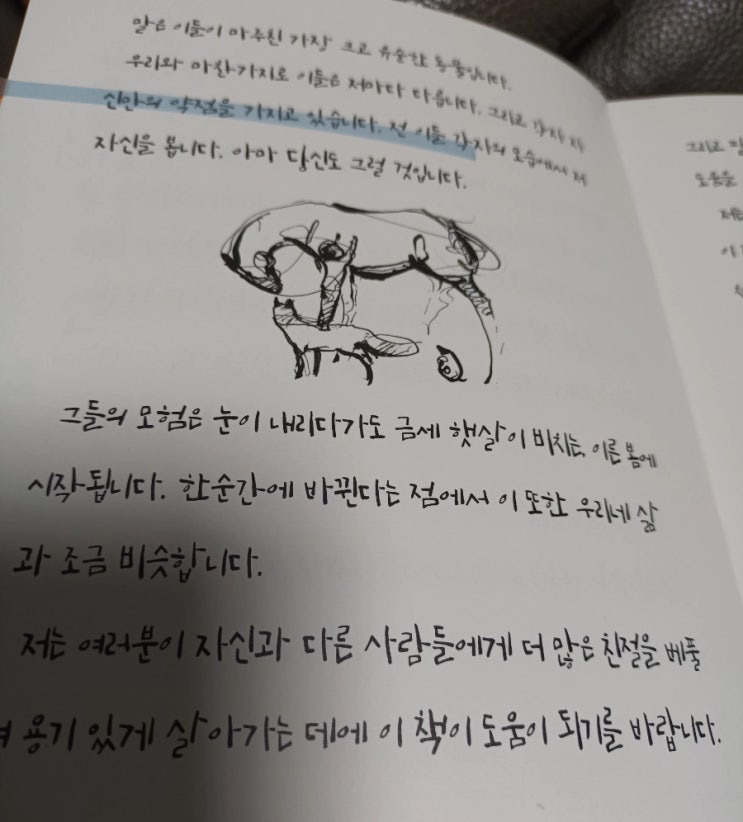 말은 이들이 마주친 가장 크고 유순한 동물입니다.
우리와 마찬가지로 이들은 저마다 다릅니다. 그리고 각자 자
신만의 약점을 가지고 있습니다. 전 이들 각자의 모습에서 저
자신을 봅니다. 아마 당신도 그럴 것입니다.
그들의 모험은 눈이 내리다가도 금세 햇살이 비치는, 이른 봄에
시작됩니다. 한순간에 바뀐다는 점에서 이 또한 우리네 삶
과 조금 비슷합니다.
저는 여러분이 자신과 다른 사람들에게 더 많은 친절을 베풀
며 용기 있게 살아가는 데에 이 책이 도움이 되기를 바랍니다.
그리고
도움을